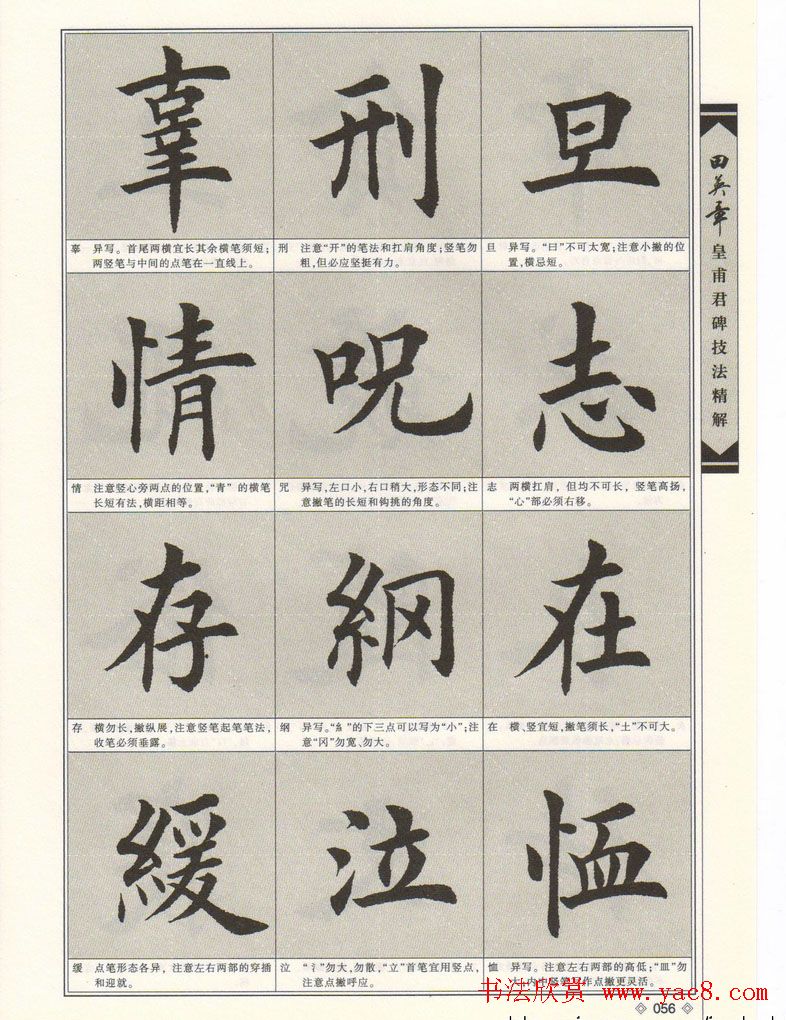 辜 刑 旦
辜 异写。首尾两横宜长其余横笔须短;
两竖笔与中间的点笔在一直线上。
刑 注意“开”的笔法和扛肩角度;竖笔勿
粗,但必应坚挺有力。
旦 异写。“曰”不可太宽;注意小撇的位
置,横忌短。
情 呪 志
情 注意竖心旁两点的位置,“青”的横笔
长短有法,横距相等。
咒 异写,左口小,右口稍大,形态不同;注
意撇笔的长短和钩挑的角度。
志 两横扛肩,但均不可长,竖笔高扬,
“心”部必须右移。
存 綱 在
存 横勿长,撇纵展,注意竖笔起笔笔法,
收笔必须垂露。
纲 异写。“糹”的下三点可以写为“小”;注
意“冈”勿宽、勿大。
在 横、竖宜短,撇笔须长,“土”不可大。
緩 泣 恤
缓 点笔形态各异,注意左右两部的穿插
和迎就。
泣 “氵”勿大,勿散,“立”首笔宜用竖点,
注意点撇呼应。
恤 异写。注意左右两部的高低;“皿”勿
内中竖笔写作点撇更灵活。
田英章
皇甫君碑技法精解
书法欣赏 www.yac8.com
056